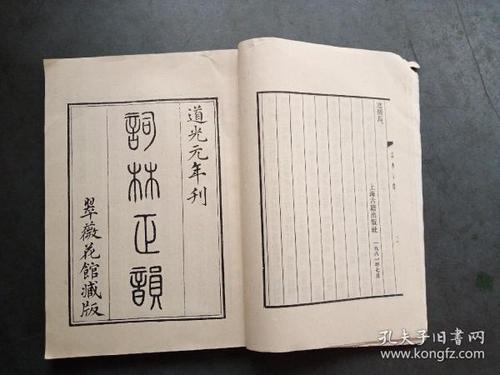 道光元年刊
詞林正韻
翠薇花館藏版
上海古籍出版社
一九八一年七月
孔夫子旧书网
www.kongfz.com